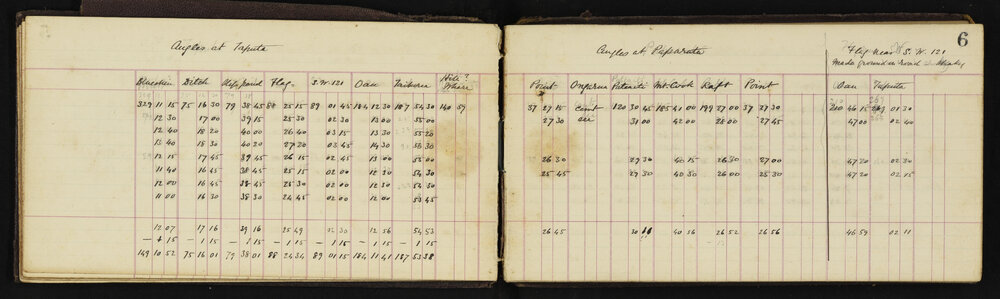 6
Angles at Taputa
Ditch Flag S.W. 121 Oau Hill ? Where
329 11 15 75 16 30 79 38 45 88 25 15 89 01 45 184 12 30 187 54 30 140 59
12 30 17 00 39 15 25 30 02 30 13 00 55 00
12 40 18 20 40 00 26 40 03 15 13 30 55 20
13 40 18 30 40 20 27 20 03 45 14 30 58 30
12 15 17 45 39 45 26 15 02 45 13 00 55 00
11 40 16 45 38 45 25 15 02 00 12 30 54 30
12 00 16 45 38 45 25 30 02 00 12 30 54 30
11 00 16 30 38 30 24 45 02 00 12 00 53 45
12 07 17 16 39 16 25 49 02 30 12 56 54 53
— 1 15 — 1 15 — 1 15 — 1 15 — 1 15 — 1 15 — 1 15
149 10 52 75 16 01 79 38 01 88 24 34 89 01 15 184 11 41 187 53 38
Angles at Paparata
Flag near S.W. 121
Made ground in
Point Mt. Cook Raft Point Oau Taputa
37 27 15 Cant 120 30 45 185 41 00 199 27 00 37 27 30 46 15 01 30
27 30 see 31 00 42 00 28 00 27 45 47 00 02 40
26 30 29 30 40 15 26 30 27 00 47 30 02 30
25 45 29 30 40 30 26 00 25 30 47 30 02 15
26 45 30 11 40 56 26 52 26 56 46 59 02 11